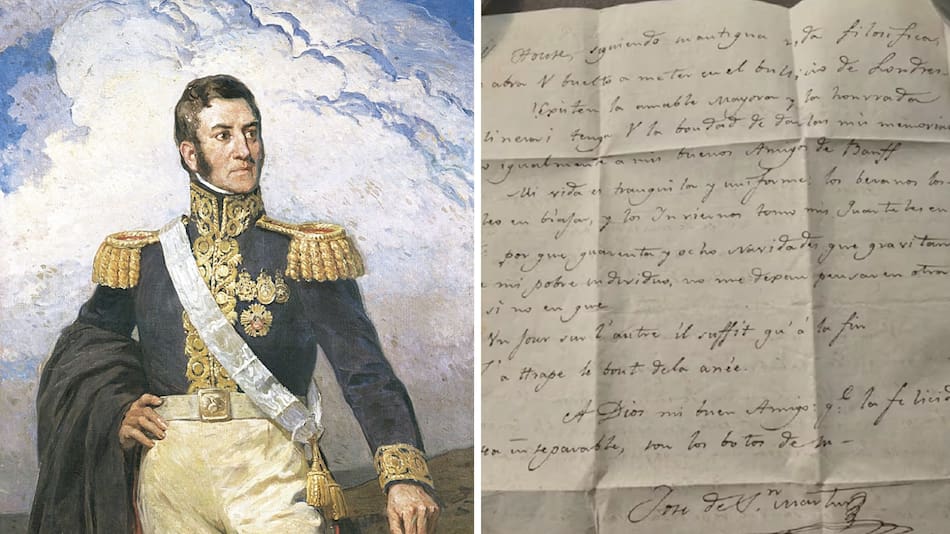 House, siguiendo mantigua vida filosifica,
abra V buelto a meter en el bullicio de Londres
Existen la amable Mayora y la honrrada
tenga V la bondad de darlas mis memorias
igualmente a mis buenos Amigos de Banff
Mi vida es tranquila y uniforme: los beranos los
en biajar, y los Inviernos tomo mis Quarteles en
por que quarenta y ocho Navidades que gravitan
mi pobre individuo, no me dexan pensar en otra
si no en que
Un Jour sur l'autre il suffit qu'á la fin
L'a ttrape le bout dela anée.
A Dios mi buen Amigo q.e la felicid
inseparable, son los botos de su-
Jose de S.n Martin